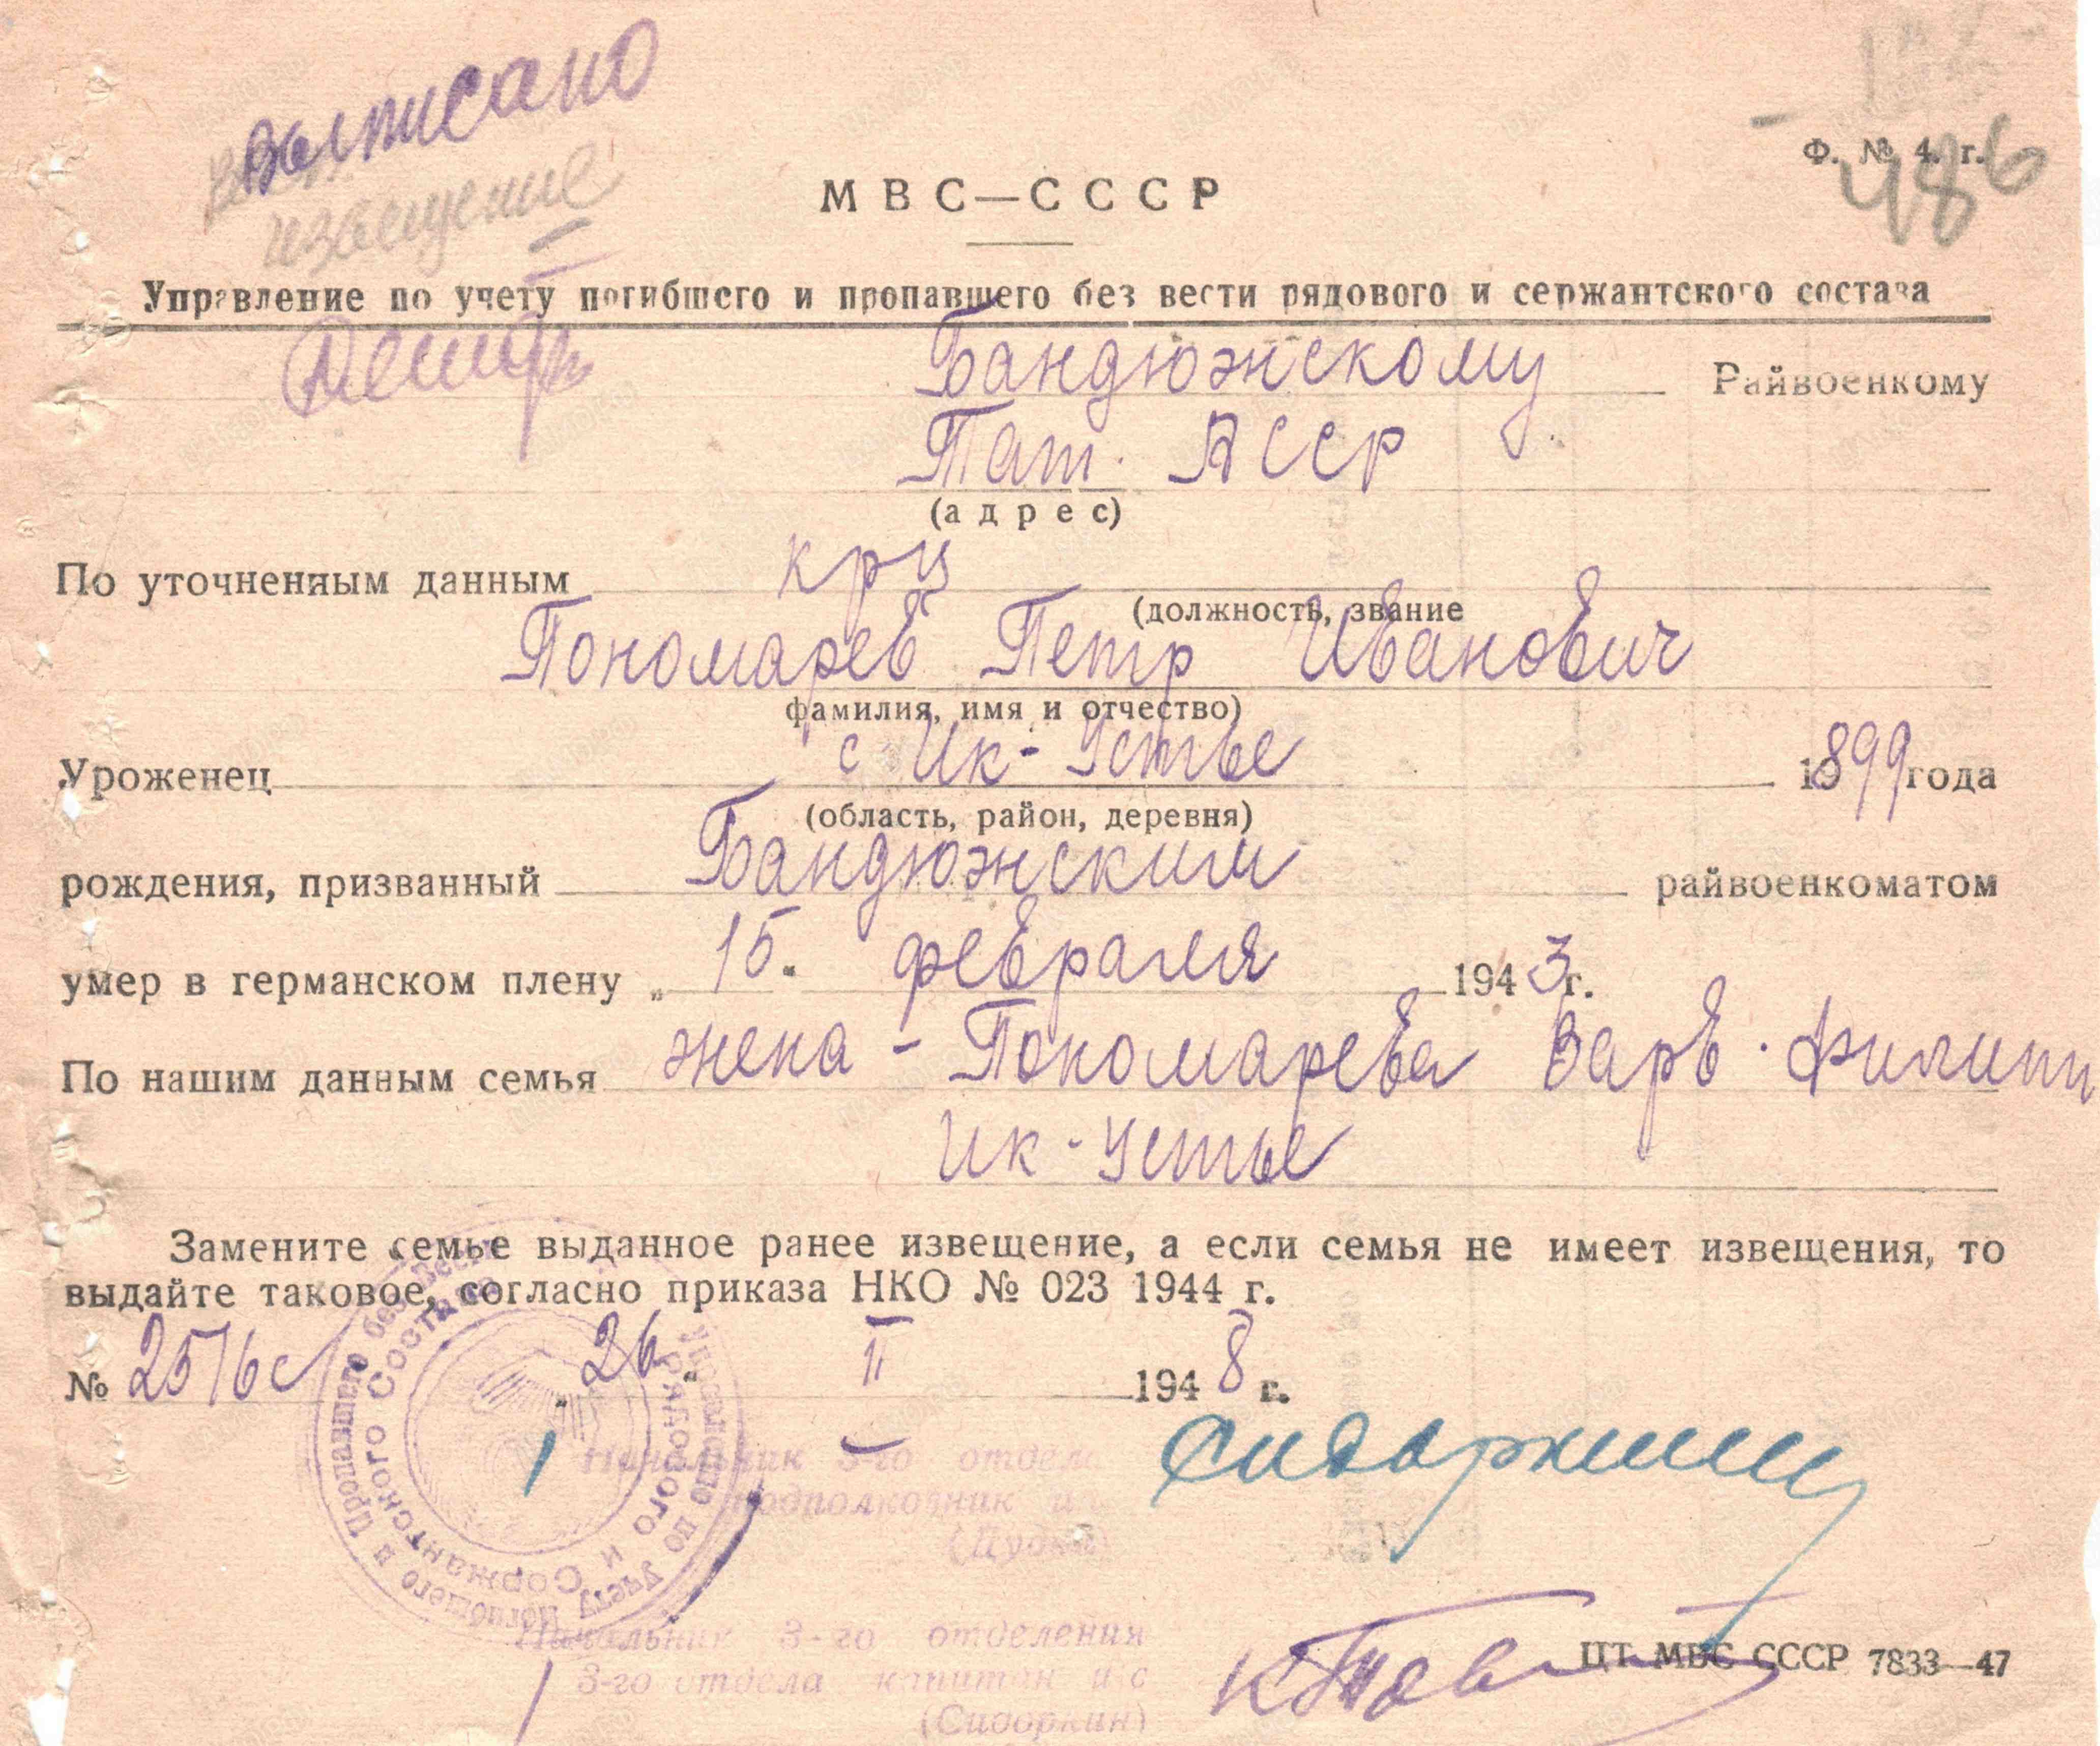 выписано
извещение
Ф. № 4. г.
486
МВС—СССР
Управление по учету погибшего и пропавшего без вести рядового и сержантского состава
Бандюжскому Райвоенкому
Тат. АССР
(адрес)
По уточненным данным крц
(должность, звание
Пономарев Петр Иванович
фамилия, имя и отчество)
Уроженец с Ик-Устье 1899 года
(область, район, деревня)
рождения, призванный Бандюжским райвоенкоматом
умер в германском плену „ 15. февраля 1943 г.
По нашим данным семья жена - Пономарева Варв. Филипп
Ик-Устье
Замените семье выданное ранее извещение, а если семья не имеет извещения, то
выдайте таковое, согласно приказа НКО № 023 1944 г.
№ 2576с „ 26 " II 1948 г.
Начальник 3-го отдела
подполковник и/с
Начальник 3-го отделения
3-го отдела капитан и/с
(Сидоркин)
Сидоркин
Управление по учету Погибшего и Пропавшего без вести
Рядового и Сержантского Состава
ЦТ МВС СССР 7833—47